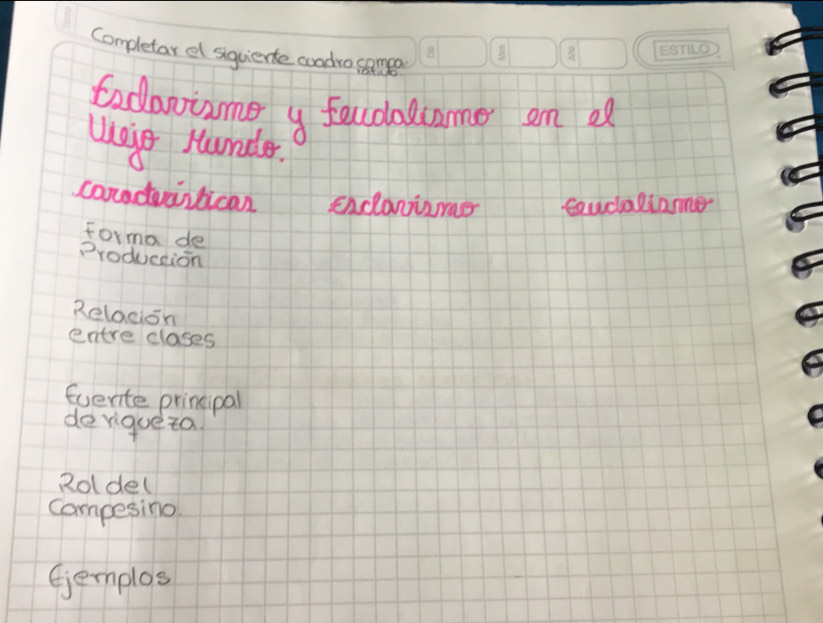 Completar el siguiente cuadro compa-
rativo.
Día
Mes
Año
ESTILO
Esclavismo y feudalismo en el
Viejo Mundo.
características esclavismo feudalismo
Forma de
Producción
Relación
entre clases
fuente principal
de riqueza.
Rol del
campesino.
Ejemplos